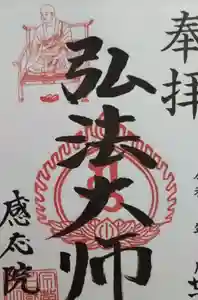 奉拝
弘法大師
感応院